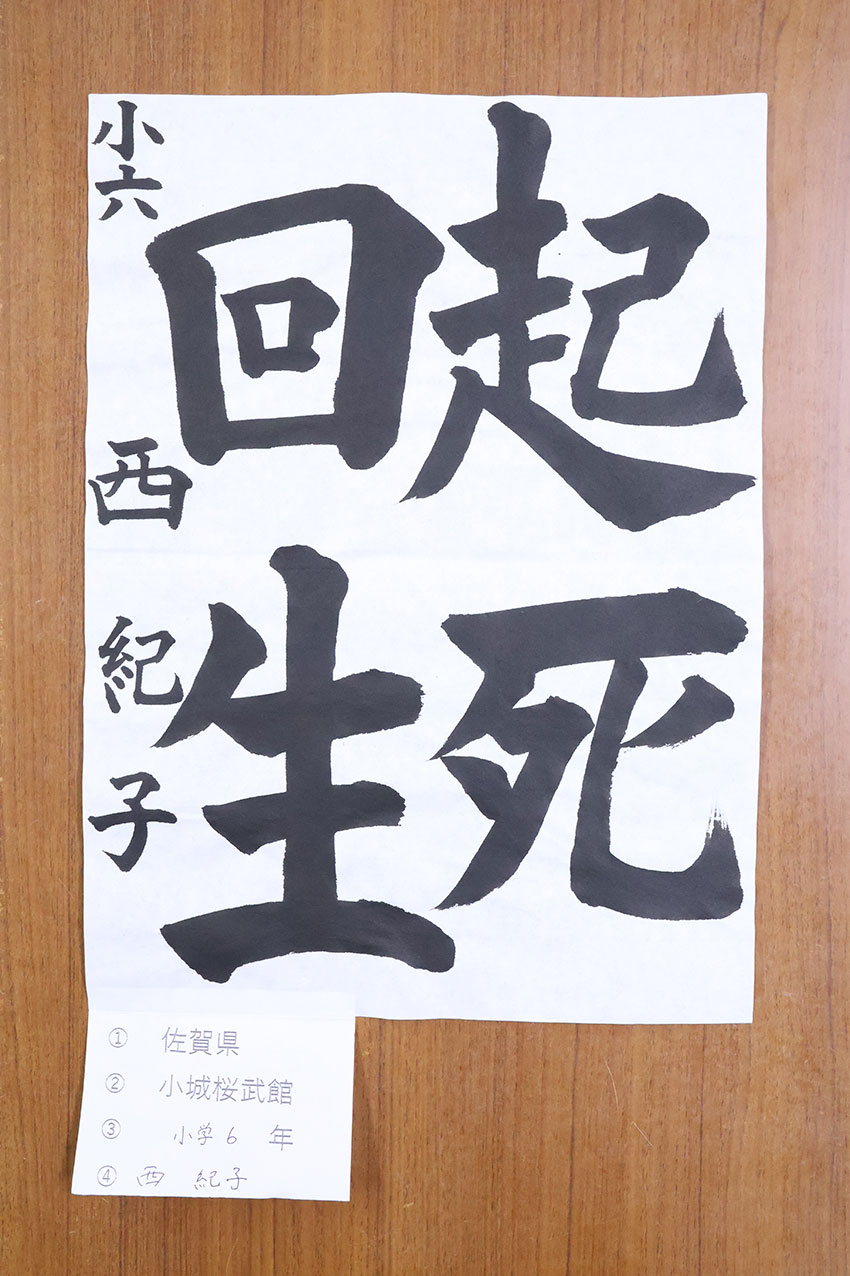 起死
回生
小六 西 紀子
① 佐賀県
② 小城桜武館
③ 小学6 年
④ 西 紀子